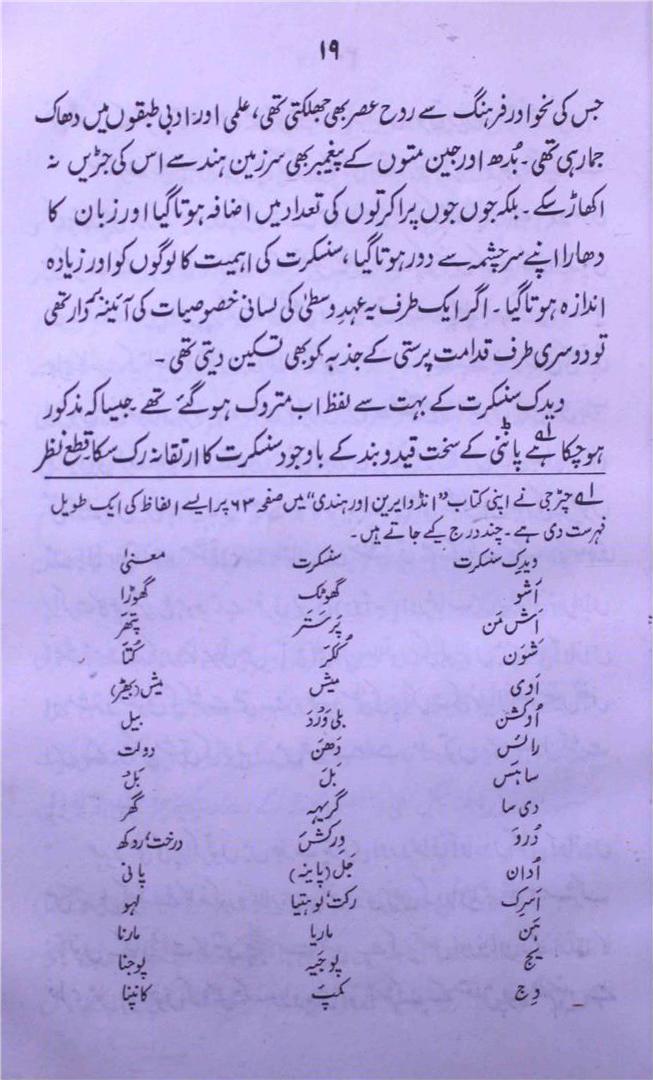 ۱۹
جس کی نحو اور فرہنگ سے روح عصر بھی جھلکتی تھی، علمی اور ادبی طبقوں میں دھاک
جما رہی تھی۔ بُدھ اور جین متوں کے پیغمبر بھی سرزمین ہند سے اس کی جڑیں نہ
اکھاڑ سکے۔ بلکہ جوں جوں پراکرتوں کی تعداد میں اضافہ ہوتا گیا اور زبان کا
دھارا اپنے سرچشمہ سے دور ہوتا گیا، سنسکرت کی اہمیت کا لوگوں کو اور زیادہ
اندازہ ہوتا گیا۔ اگر ایک طرف یہ عہدِ وسطیٰ کی لسانی خصوصیات کی آئینہ بردار تھی
تو دوسری طرف قدامت پرستی کے جذبہ کو بھی تسکین دیتی تھی۔
ویدک سنسکرت کے بہت سے لفظ اب متروک ہو گئے تھے جیسا کہ مذکور
ہو چکا ہے لہ پاننی کے سخت قید و بند کے باوجود سنسکرت کا ارتقا نہ رک سکا قطع نظر
لہ چٹرجی نے اپنی کتاب "انڈو ایرین اور ہندی" میں صفحہ ۶۳ پر ایسے الفاظ کی ایک طویل
فہرست دی ہے۔ چند درج کیے جاتے ہیں۔
ویدک سنسکرت سنسکرت معنیٰ
اَشو گھوٹک گھوڑا
اَش مَن پَرَستَر پتھر
شَوَن کُکّر کُتّا
اَوِی میش میش (بھیڑ)
اُوکشن بلی وَرد بیل
رائس دَھَن دولت
ساہَس بَل بَل
دی سا گریہہ گھر
دُروَ وِرکش درخت، رُوکھ
اُدان جَل (پانیہ) پانی
اَسرِک رکت، لوہتیا لہو
ہَن ماریا مارنا
یج پوجیہ پوجنا
وِج کمپ کانپنا